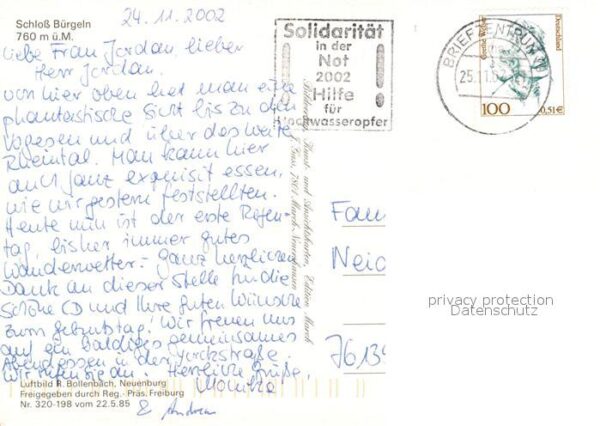 Schloß Bürgeln
760 m ü.M.
24.11.2002
Liebe Frau Jordan, lieber
Herr Jordan,
von hier oben hat man eine
phantastische Sicht bis zu den
Vogesen und über das weite
Rheintal. Man kann hier
auch ganz exquisit essen,
wie wir gestern feststellten.
Heute nun ist der erste Regen-
tag, bisher immer gutes
Wanderwetter. Ganz herzlichen
Dank an dieser Stelle für die
schöne CD und Ihre guten Wünsche
zum Geburtstag! Wir freuen uns
auf ein baldiges gemeinsames
Abendessen in der Yorckstraße.
Wir rufen Sie an. Herzliche Grüße,
Monika
& Andreas
Luftbild R. Bollenbach, Neuenburg
Freigegeben durch Reg.-Präs. Freiburg
Nr. 320-198 vom 22.5.85
Solidarität
in der
Not
2002
Hilfe
für
Hochwasseropfer
BRIEFZENTRUM
25.11.
Deutschland
100
0,51€
Fam
Neid
76139
privacy protection
Datenschutz